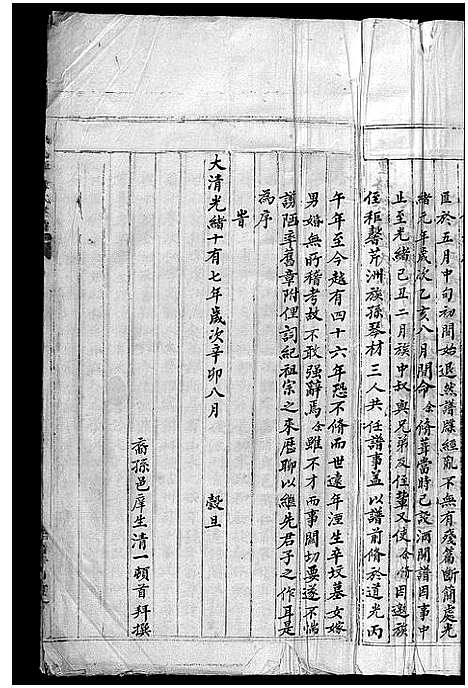 匡於五月中旬初間始退然譜牒經亂不無有殘篇斷簡處光
緒元年歲次乙亥八月間命余脩葺當時已設酒開譜因事中
止至光緒己丑二月族中叔與兄弟及侄輩又使余脩因邀族
侄秬馨芹洲族孫琴材三人共任譜事蓋以譜前脩於道光丙
午年至今越有四十六年恐不脩而世遠年湮生卒坟墓女嫁
男婚無所稽考故不敢强辭焉余雖不才而事關切要遂不惴
謭陋率舊章附俚詞紀祖宗之來歷聊以繼先君子之作耳是
為序
旹
大清光緒十有七年歲次辛卯八月 穀旦
裔孫邑庠生清一頓首拜撰